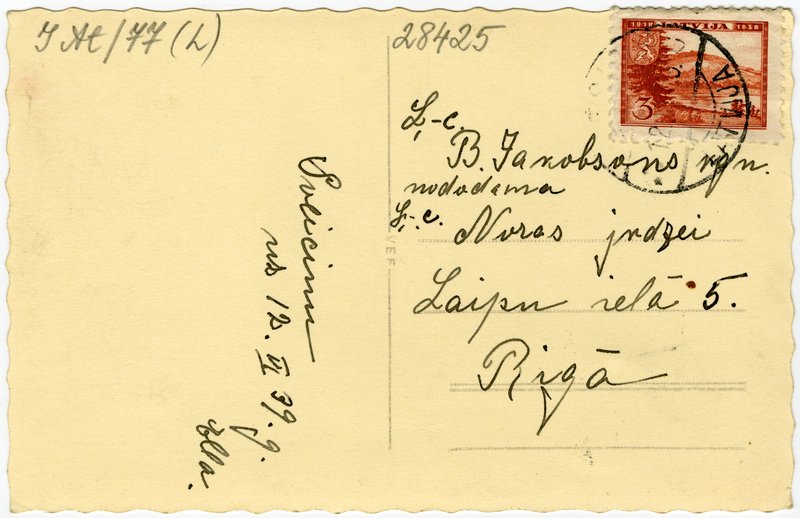 J At/77 (L)
28425
1918 LATVIJA 1938
3
LATVIJA
Ļ-c.
B. Jakobsons kgn.
nododama
Ļ-c. Noras jrdzei
Laipu ielā 5.
Rīgā
VEF
Sveicinu
uz 12. VI 39. g.
Ella.